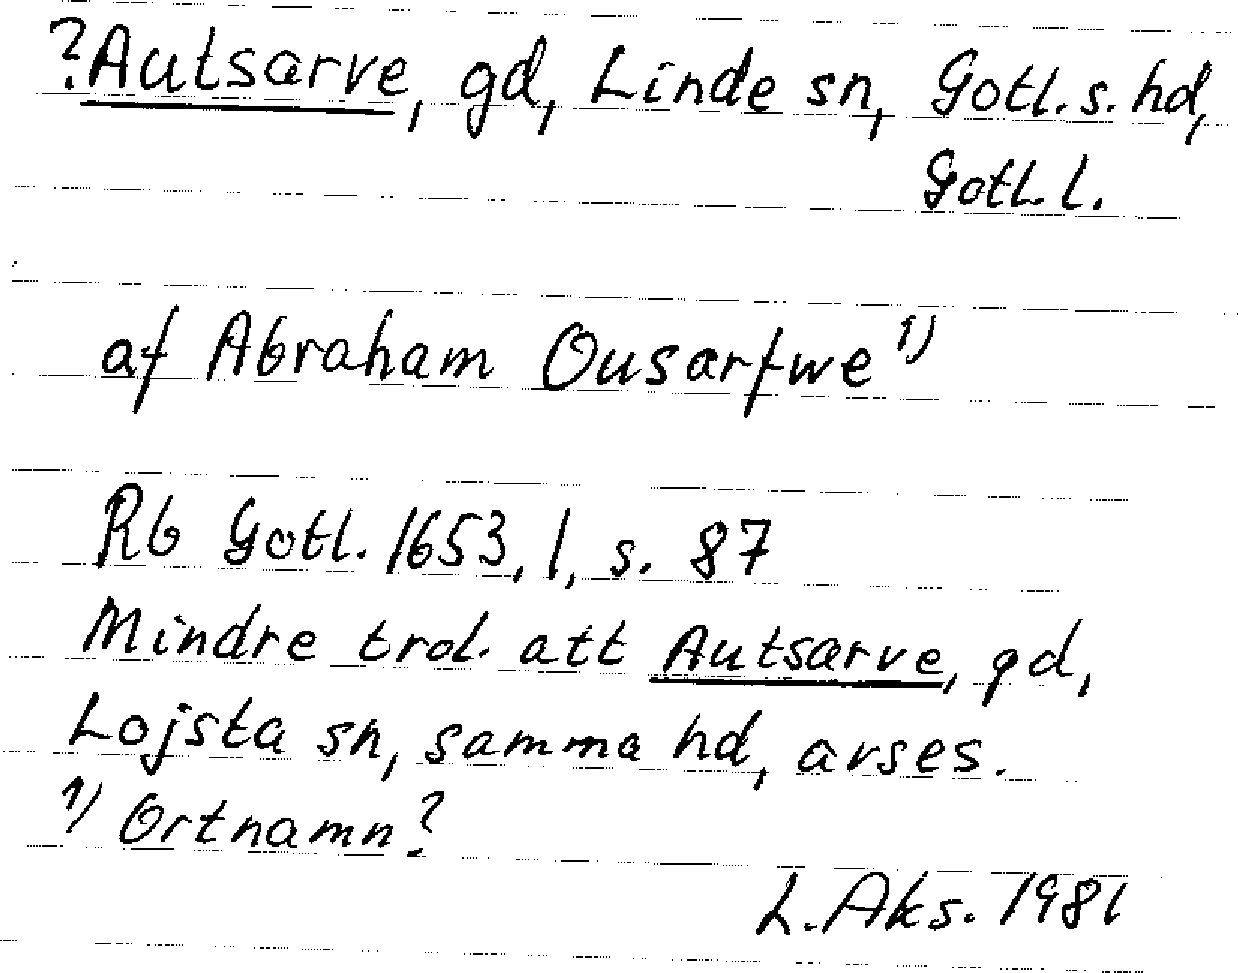 ?Autsarve, gd, Linde sn, Gotl. s. hd,
Gotl. l.
af Abraham Ousarfwe 1)
Rb Gotl. 1653, 1, s. 87
Mindre trol. att Autsarve, gd,
Lojsta sn, samma hd, avses.
1) Ortnamn?
L. Aks. 1981